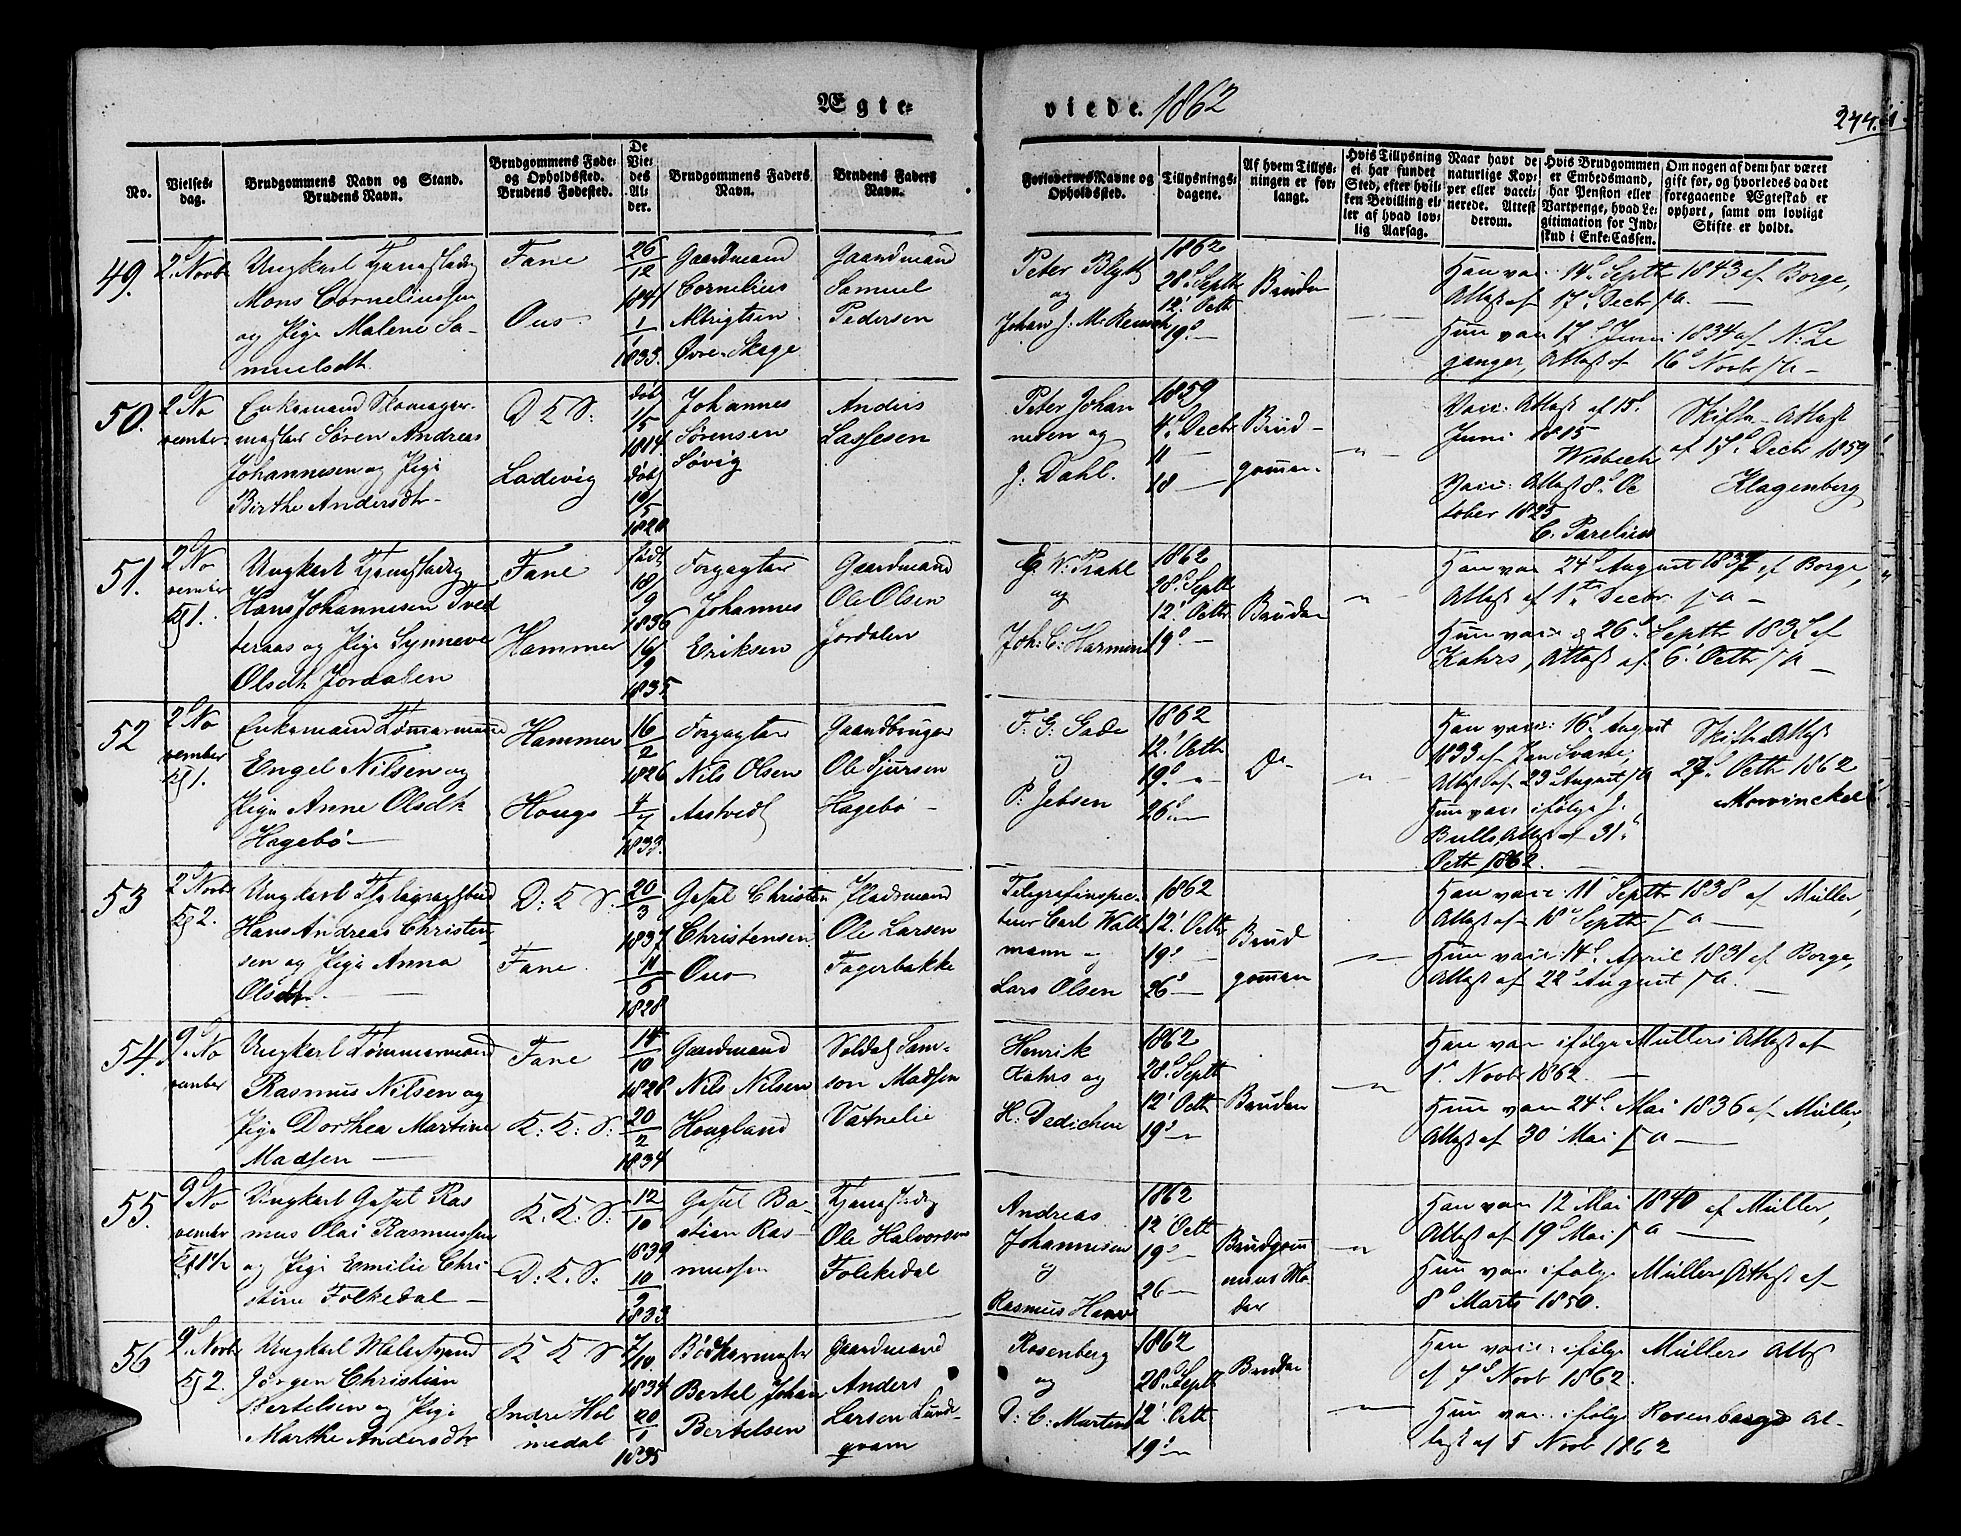 Ægte-
viede. 1862
244.
No.
Vielses-
dag.
Brudgommens Navn og Stand.
Brudens Navn.
Brudgommens Føde-
og Opholdssted.
Brudens Fødested.
De
Vie-
des
Al-
der.
Brudgommens Faders
Navn.
Brudens Faders
Navn.
Forlovernes Navne og
Opholdssted.
Tillysnings-
dagene.
Af hvem Tillys-
ningen er for-
langt.
Hvis Tillysning
ei har fundet
Sted, efter hvil-
ken Bevilling el-
ler af hvad lov-
lig Aarsag.
Naar havt de
naturlige Kop-
per eller vacci-
nerede. Attest
derom.
Hvis Brudgommen
er Embedsmand,
har Pension eller
Vartpenge, hvad Le-
gitimation for Ind-
skud i Enke-Cassen.
Om nogen af dem har været
gift for, og hvorledes da det
foregaaende Ægteskab er
ophørt, samt om lovligt
Skifte er holdt.
49.
2d Novbr
Ungkarl Tjenestedrg
Mons Corneliussen
og Pige Malene Sa-
muelsdtr
Fane
Ous.
26
12
1841
1
1
1833.
Gaardmand
Cornelius
Albrigtsen
Øvre-Skage
Gaardmand
Samuel
Pedersen
Peter Blytt
og
Johan J. M. Reusch
1862
28d Septbr
12' Octbr
19d —
Bruden
Han vac: 14d Septbr 1843 af Borge,
Attest af 17d Decbr s. a. —
Hun vac: 17d Juni 1834 af N: Le
ganger, Attest af 16d Novbr s. a —
50.
2d No
vember
Enkemand Skomager-
mester Søren Andreas
Johannesen og Pige
Birthe Andersdtr
D K S:
Ladevig
døbt
1/5
1814
døbt
19/5
1820
Johannes
Sørensen
Søvig
Anders
Lassesen
Peter Johan
nesen og
J. Dahl.
1859
4d Decbr
11 —
18 —
Brud-
gommen
— " —
Vacc: Attest af 15d
Juni 1815
Wisbech
Vacc: Attest 8d Oc
tober 1825
C. Parelius
Skifte-Attest
af 17d Decbr 1859
Klagenberg
51.
2d No
vember
Kl 1.
Ungkarl Tjenestedrg
Hans Johannesen Tved
teraas og Pige Synneve
Olsdtr Jordalen
Fane
Hammer
født
18/9
1836
16/9
1835.
Forpagter
Johannes
Eriksen
Gaardmand
Ole Olsen
Jordalen
E. W. Prahl
og
Joh: C: Harmens
1862
28d Septbr
12' Octbr
19d —
Bruden
— " —
Han vac: 24d August 1837 af Borge,
Attest af 1ste Decbr s. a —
Hun vac: 26d Septbr 1835 af
Kahrs, Attest af 6' Octbr s. a —
52
2d No
vember
Kl 1.
Enkemand Tømmermand
Engel Nilsen og
Pige Anne Olsdtr
Hagebø —
Hammer
Hougs
16
2
1826
4
7
1833.
Forpagter
Nils Olsen
Aastvedt
Gaardbruger
Ole Sjursen
Hagebø —
F. G. Gade
og
P: Jebsen
1862
12' Octbr
19d — "
26d —
Do
— " —
Han vac: 16d August
1833 af Jan Svane,
Attest af 23d August s. a
Hun vac: ifølge J.
Bulls Attest af 31d
Octbr 1862.
Skifte Attest
27d Octbr 1862
Mowinckel
53
2d Novbr
Kl 2.
Hans Andreas Christen-
sen og Pige Anna
Olsdtr. —
D: K S:
Fane.
20
3
1837
11
5
1828
Gesel Christen
Christensen
Ous
Pladsmand
Ole Larsen
Fagerbakke
Telegrafinspec-
teur Carl Walt
mann og
Lars Olsen
1862
12' Octbr
19d —
26d —
Brud
gommen
— " —
Han vac: 11' Septbr 1838 af Müller,
Attest af 18d Septbr s. a —
Hun vac: 14d April 1831 af Borge,
Attest af 22d August s. a. —
54.
9d No
vember
Ungkarl Tømmermand
Rasmus Nilsen og
Pige Dorthea Martine
Madsen —
Fane
K: K: S:
14
10
1828
20
2
1834
Gaardmand
Nils Nilsen
Hougland
Soldat Sam-
son Madsen
Vatnelie
Henrik
Kahrs og
H: Dedichen
1862
28d Septbr
12' Octbr
19d — "
Bruden
— " —
Han vac: ifølge Müllers Attest af
1d Novbr 1862. —
Hun vac: 24d Mai 1836 af Müller,
Attest af 30 Mai s. a —
55.
9d No
vember
Ungkarl Gesel Ras
mus Olai Rasmussen
og Pige Emilie Chri
stine Folkedal —
K: K: S:
D: K. S:
12
10
1839
10
9
1833
Gesel Ba-
stian Ras-
mussen
Tjenestedrg
Ole Halvorsen
Folkedal
Andreas
Johannesen
og
Rasmus Hansen
1862
12' Octbr
19d —
26 —
Brudgom
mens Mo
der
— " —
Han vac: 12 Mai 1840 af Müller,
Attest af 19d Mai s. a —
Hun vac: ifølge Müllers Attest af
8d Marts 1850.
56
9d Novbr
Kl 2.
Ungkarl Malersvend
Jørgen Christian
Bertelsen og Pige
Marthe Andersdtr
K K S
Indre Hol
medal
7/10
1834
20
1
1835
Bødkermester
Bertel Johan
Bertelsen
Gaardmand
Anders
Larsen Lund-
qvam
Rosenberg
og
D: C. Martens
1862
28d Septbr
12' Octbr
19d — "
Bruden
— " —
Han vac: ifølge Müllers Attest
af 7d Novbr 1862.
Hun vac: ifølge Rosenbergs At-
test af 5 Novbr 1862